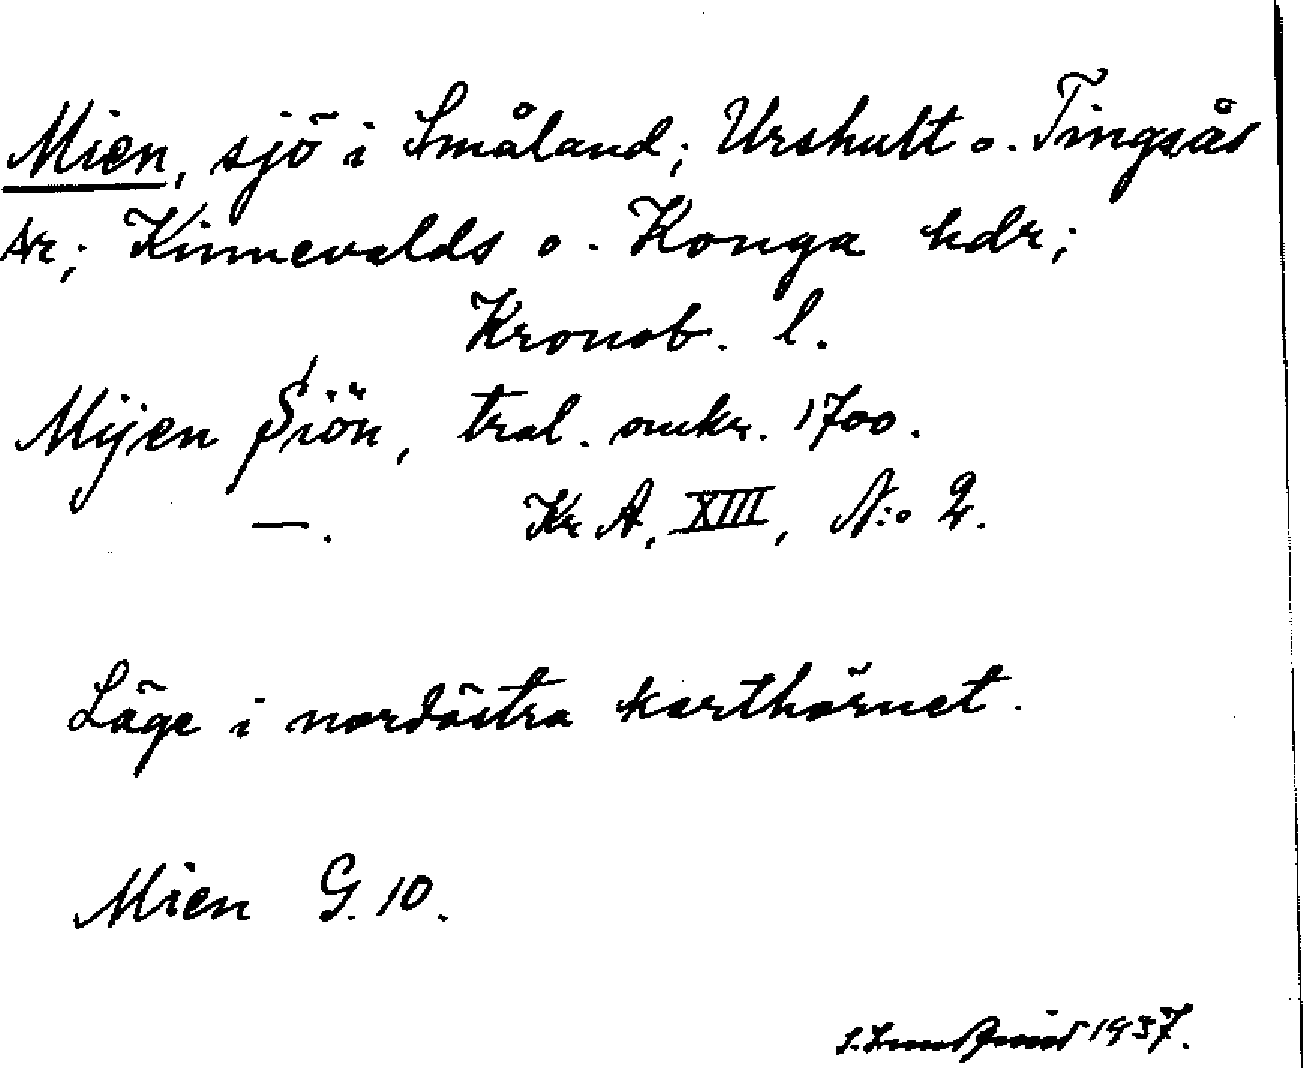 Mien, sjö i Småland; Urshult o. Tingsås
sr; Kinnevalds o. Konga hdr;
Kronob. l.
Mijen Siön, tral. omkr. 1700.
—. Kr A, XIII, N:o 2.
Läge i nordöstra karthörnet.
Mien G. 10.
1937.